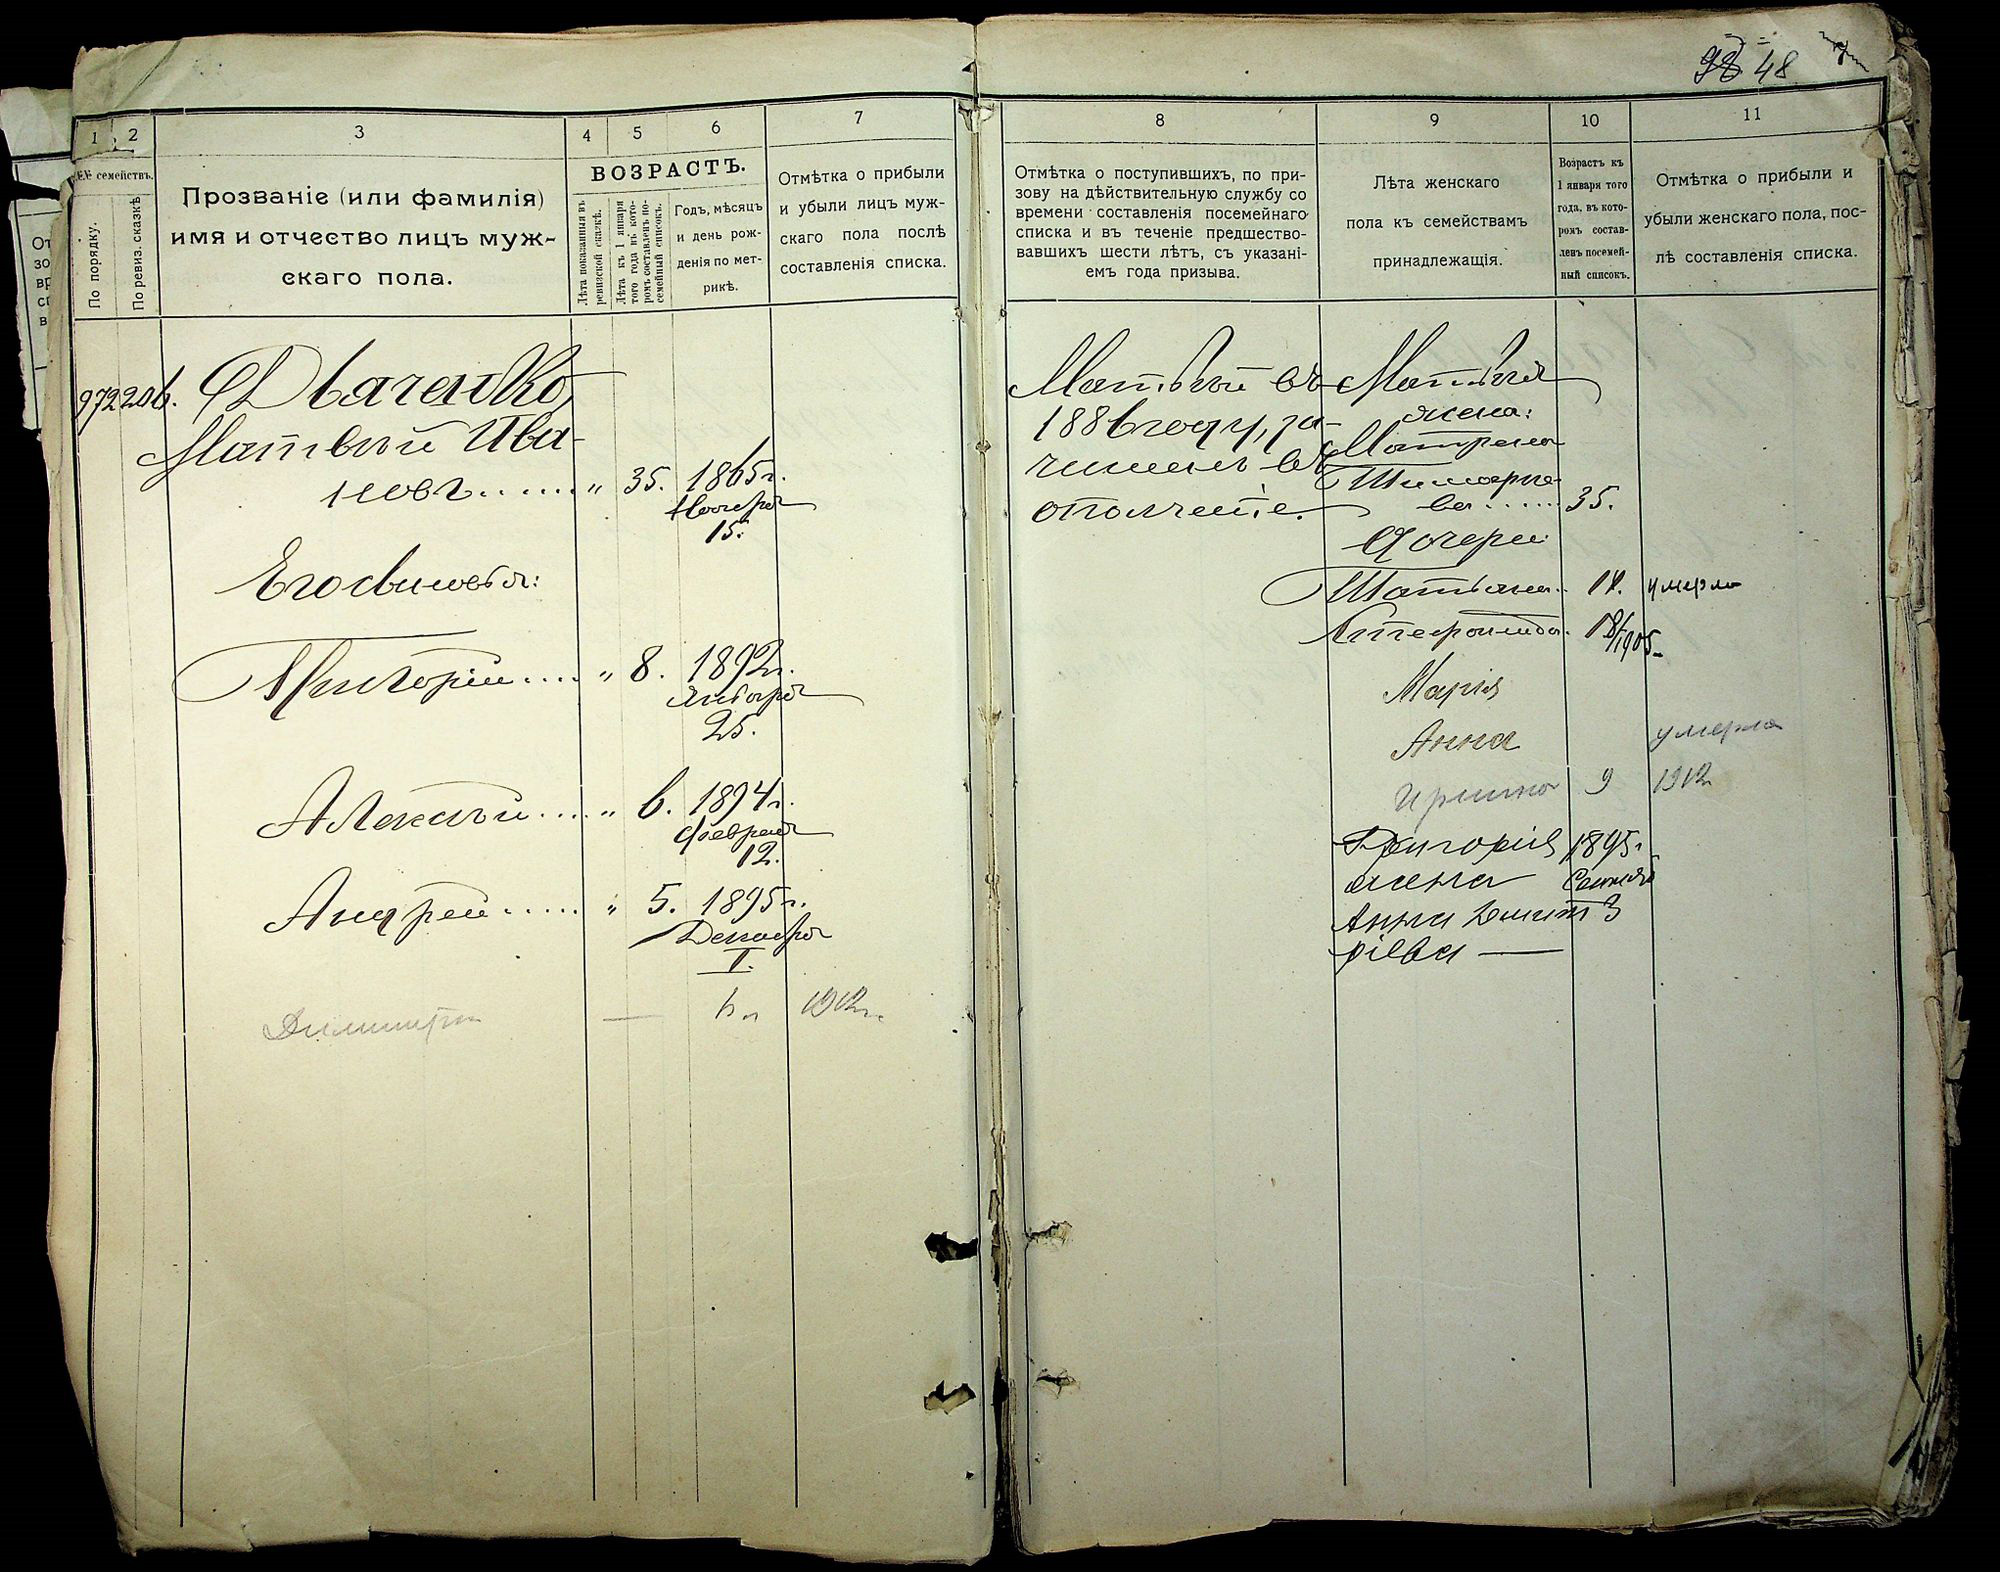 98 48
1 2 3 4 5 6 7
№№ семействъ.
По порядку.
По ревиз. сказкѣ
Прозваніе (или фамилія)
имя и отчество лицъ муж-
скаго пола.
ВОЗРАСТЪ.
Лѣта показанныя въ
ревизской сказкѣ.
Лѣта къ 1 января
того года въ кото-
ромъ составленъ по-
семейный списокъ.
Годъ, мѣсяцъ
и день рож-
денія по мет-
рикѣ.
Отмѣтка о прибыли
и убыли лицъ муж-
скаго пола послѣ
составленія списка.
972 206. Дьяченко,
Матвѣй Ива-
новъ...... " 35. 1865 г.
Ноября
15.
Его сыновья:
Григорій.... " 8. 1892 г.
Января
25.
Алексѣй..... " 6. 1894 г.
Февраля
12.
Андрей...... " 5. 1895 г.
Декабря
1.
Димитрій — 6 л 1912 г.
8 9 10 11
Отмѣтка о поступившихъ, по при-
зову на дѣйствительную службу со
времени составленія посемейнаго
списка и въ теченіе предшество-
вавшихъ шести лѣтъ, съ указані-
емъ года призыва.
Лѣта женскаго
пола къ семействамъ
принадлежащія.
Возрастъ къ
1 января того
года, въ кото-
ромъ состав-
ленъ посемей-
ный списокъ.
Отмѣтка о прибыли и
убыли женскаго пола, пос-
лѣ составленія списка.
Матвѣй въ
1886 году, за-
численъ въ
ополченіе.
Матвѣя
жена:
Матрена
Тимофее-
ва...... 35.
Дочери:
Татьяна.. 14. умерла
18/1905
Марія
Анна умерла
Ирина 9 1912
Григорія 1895 г.
жена
Анна Дмит 3
ріева —